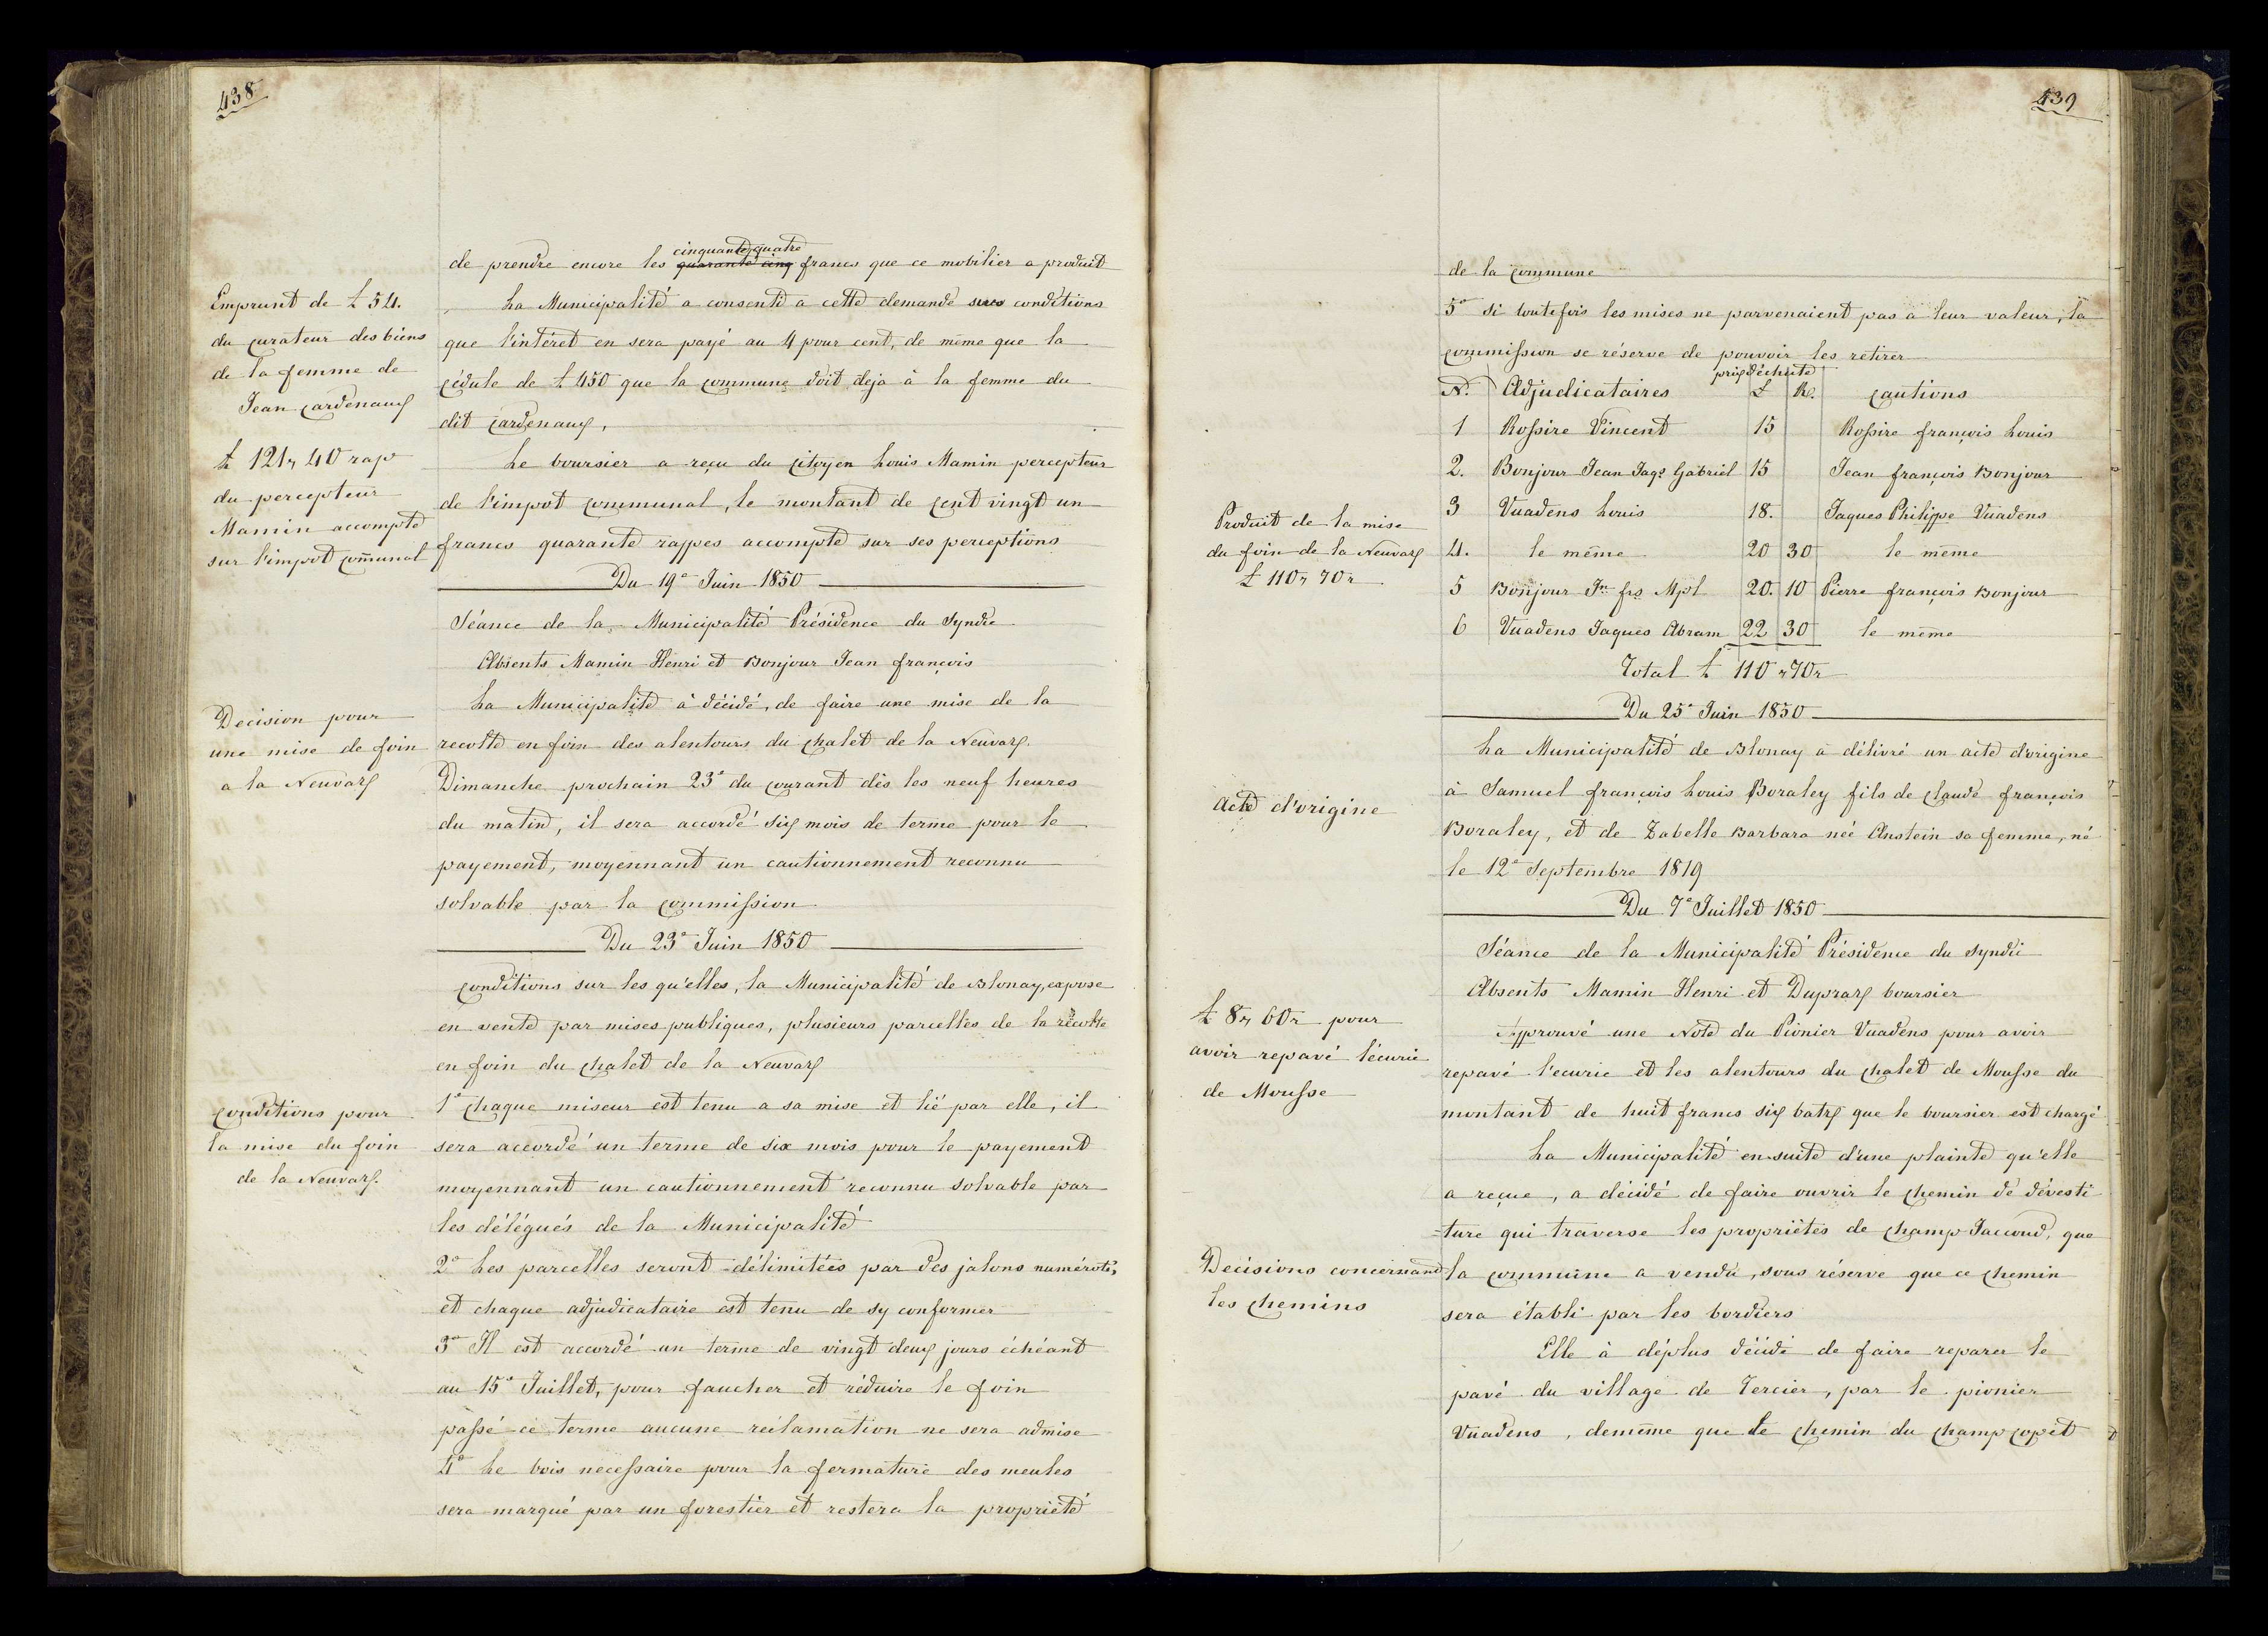 438
de prendre encore les quarante cinq cinquante quatre francs que ce mobilier a produit
Emprunt de £ 54.
du curateur des biens
de la femme de
Jean Cardenaux
La Municipalité a consenti a cette demande sous conditions
que l'intéret en sera payé au 4 pour cent, de même que la
cédule de £ 450 que la commune doit deja à la femme du
dit Cardenaux,
£ 121,, 40 rap
du percepteur
Mamin accompte
sur l'impot communal
Le boursier a reçu du Citoyen Louis Mamin percepteur
de l'impot communal, le montant de cent vingt un
francs quarante rappes accompte sur ses perceptions
Du 19e Juin 1850
Séance de la Municipalité Présidence du Syndic
Absents Mamin Henri et Bonjour Jean françois
Decision pour
une mise de foin
a la Neuvaz
La Municipalité à décidé, de faire une mise de la
recolte en foin des alentours du chalet de la Neuvaz.
Dimanche prochain 23e du courant dès les neuf heures
du matin, il sera accordé six mois de terme pour le
payement, moyennant un cautionnement reconnu
solvable par la commission
Du 23e Juin 1850
Conditions sur les qu'elles, la Municipalité de Blonay, expose
en vente par mises publiques, plusieurs parcelles de la récolte
en foin du chalet de la Neuvaz
Conditions pour
la mise du foin
de la Neuvaz.
1o Chaque miseur est tenu a sa mise et lié par elle, il
sera accordé un terme de six mois pour le payement
moyennant un cautionnement reconnu solvable par
les délégués de la Municipalité
2o Les parcelles seront délimitées par des jalons numérotés,
et chaque adjudicataire est tenu de sy conformer
3o Il est accordé un terme de vingt deux jours échéant
au 15e Juillet, pour faucher et réduire le foin
passé ce terme aucune reclamation ne sera admise
4o Le bois necessaire pour la fermature des meules
sera marqué par un forestier et restera la propriété
439
de la commune
5o si toutefois les mises ne parvenaient pas à leur valeur, la
commission se réserve de pouvoir les retirer
prix d'échute
N. Adjudicataires £ R. Cautions
1 Rossire Vincent 15 Rossire françois Louis
2. Bonjour Jean Jaqs Gabriel 15 Jean françois Bonjour
3 Vuadens Louis 18. Jaques Philippe Vuadens
Produit de la mise
du foin de la Neuvaz
£ 110,, 70r
4. le même 20 30 le même
5 Bonjour Jn frs Mpl 20. 10 Pierre françois Bonjour
6 Vuadens Jaques Abram 22 30 le même
Total £ 110,,70r
Du 25e Juin 1850
Acte d'origine
La Municipalité de Blonay à délivré un acte d'origine
à Samuel françois Louis Boraley fils de Claude françois
Boraley, et de Isabelle Barbara née Anstein sa femme, né
le 12e Septembre 1819
Du 7e Juillet 1850
Séance de la Municipalité Présidence du Syndic
Absents Mamin Henri et Dupraz boursier
£ 8,, 60r pour
avoir repavé l'écurie
de Mousse
Approuvé une Note du Pionier Vuadens pour avoir
repavé l'ecurie et les alentours du chalet de Mousse du
montant de huit francs six batz que le boursier est chargé
La Municipalité ensuite d'une plainte qu'elle
a reçue, a décidé de faire ouvrir le chemin de dévesti
=ture qui traverse les propriétes de champ Jaccoud, que
Decisions concernand
les chemins
la commune a vendu, sous réserve que ce chemin
sera établi par les bordiers
Elle à déplus décidé de faire reparer le
pavé du village de Tercier, par le pionier
Vuadens, demême que le chemin du Champ Copet